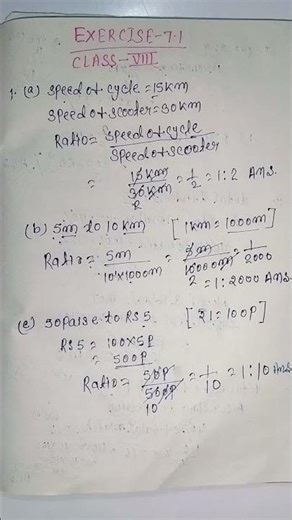 EXERCISE-7.1
CLASS-VIII
1. (a) Speed of cycle = 15km
Speed of scooter = 30km
Ratio = Speed of cycle / Speed of scooter
= 15km / 30km = 1/2 = 1:2 Ans.
2
(b) 5m to 10km [1km = 1000m]
Ratio = 5m / 10×1000m = 5m / 10000m = 1/2000
2 = 1:2000 Ans
(c) 50paise to RS 5 [₹1 = 100P]
RS 5 = 100×5P
= 500P
Ratio = 50P / 500P = 1/10 = 1:10 Ans
10